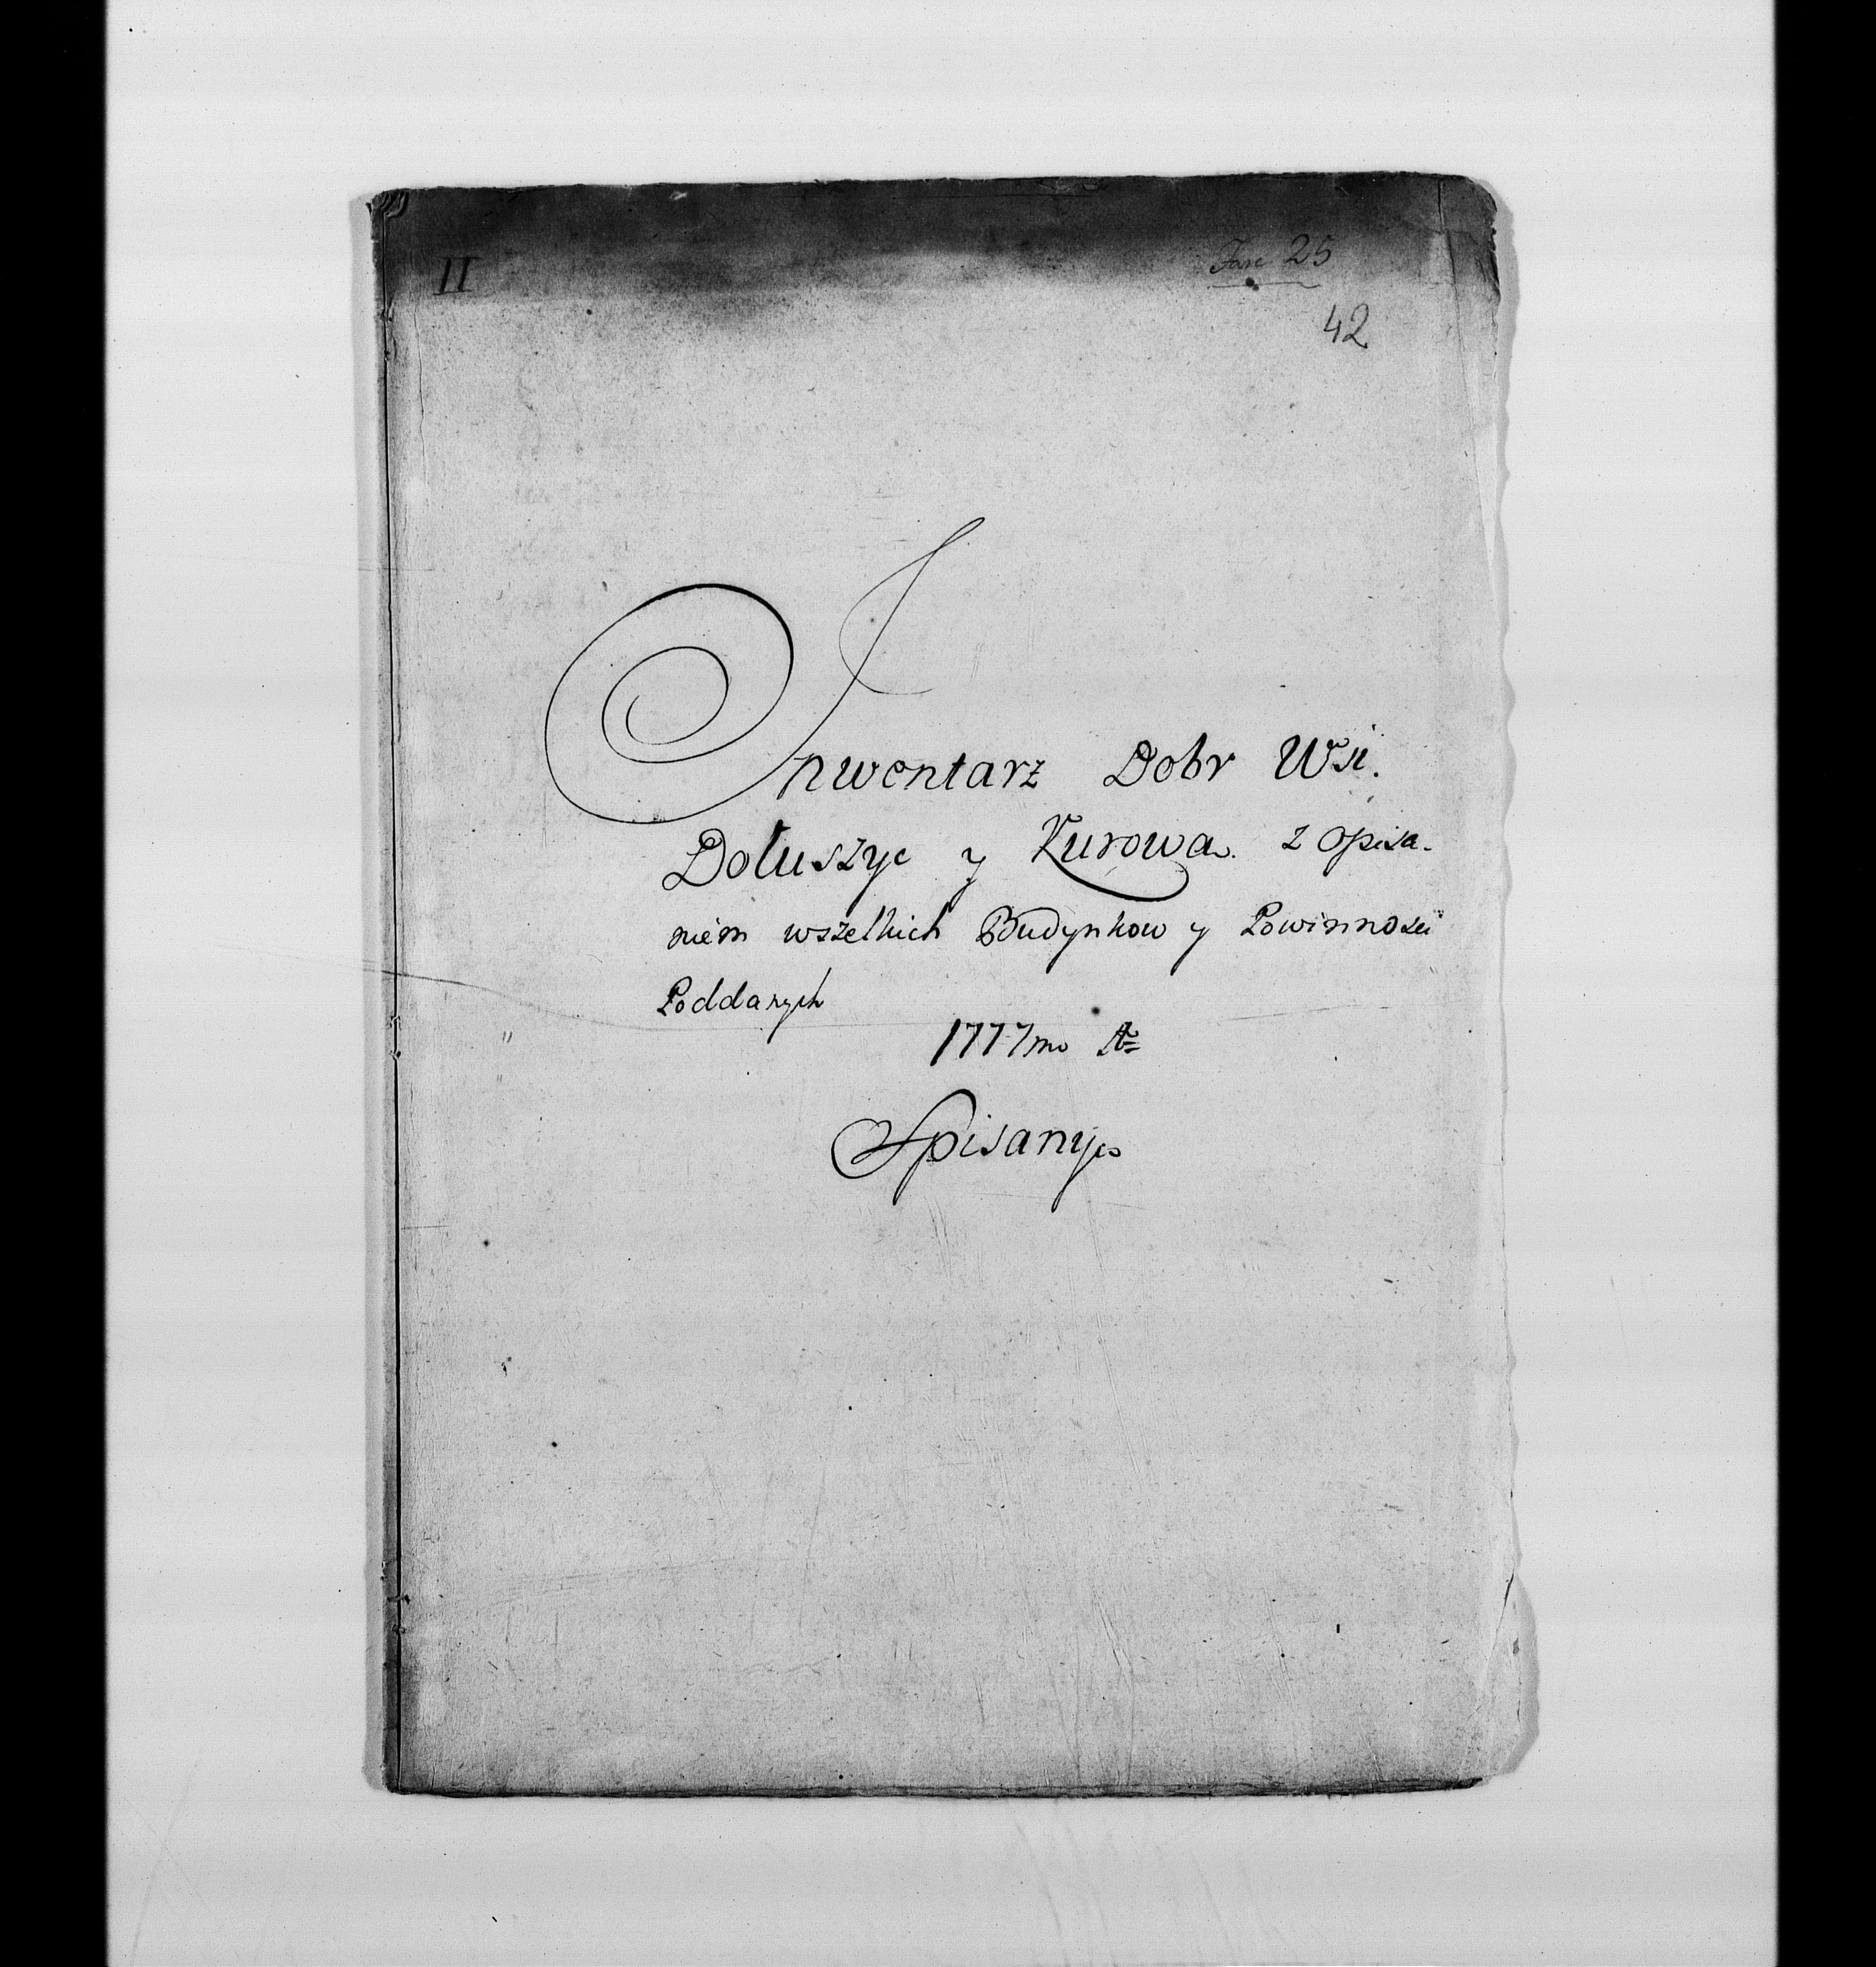 II
Fasc 25
42
Inwentarz Dobr Wsi
Dołuszyc y Kurowa z opisa-
niem wszelkich Budynkow y Powinnosci
Poddanych
1777mo Ao
Spisany